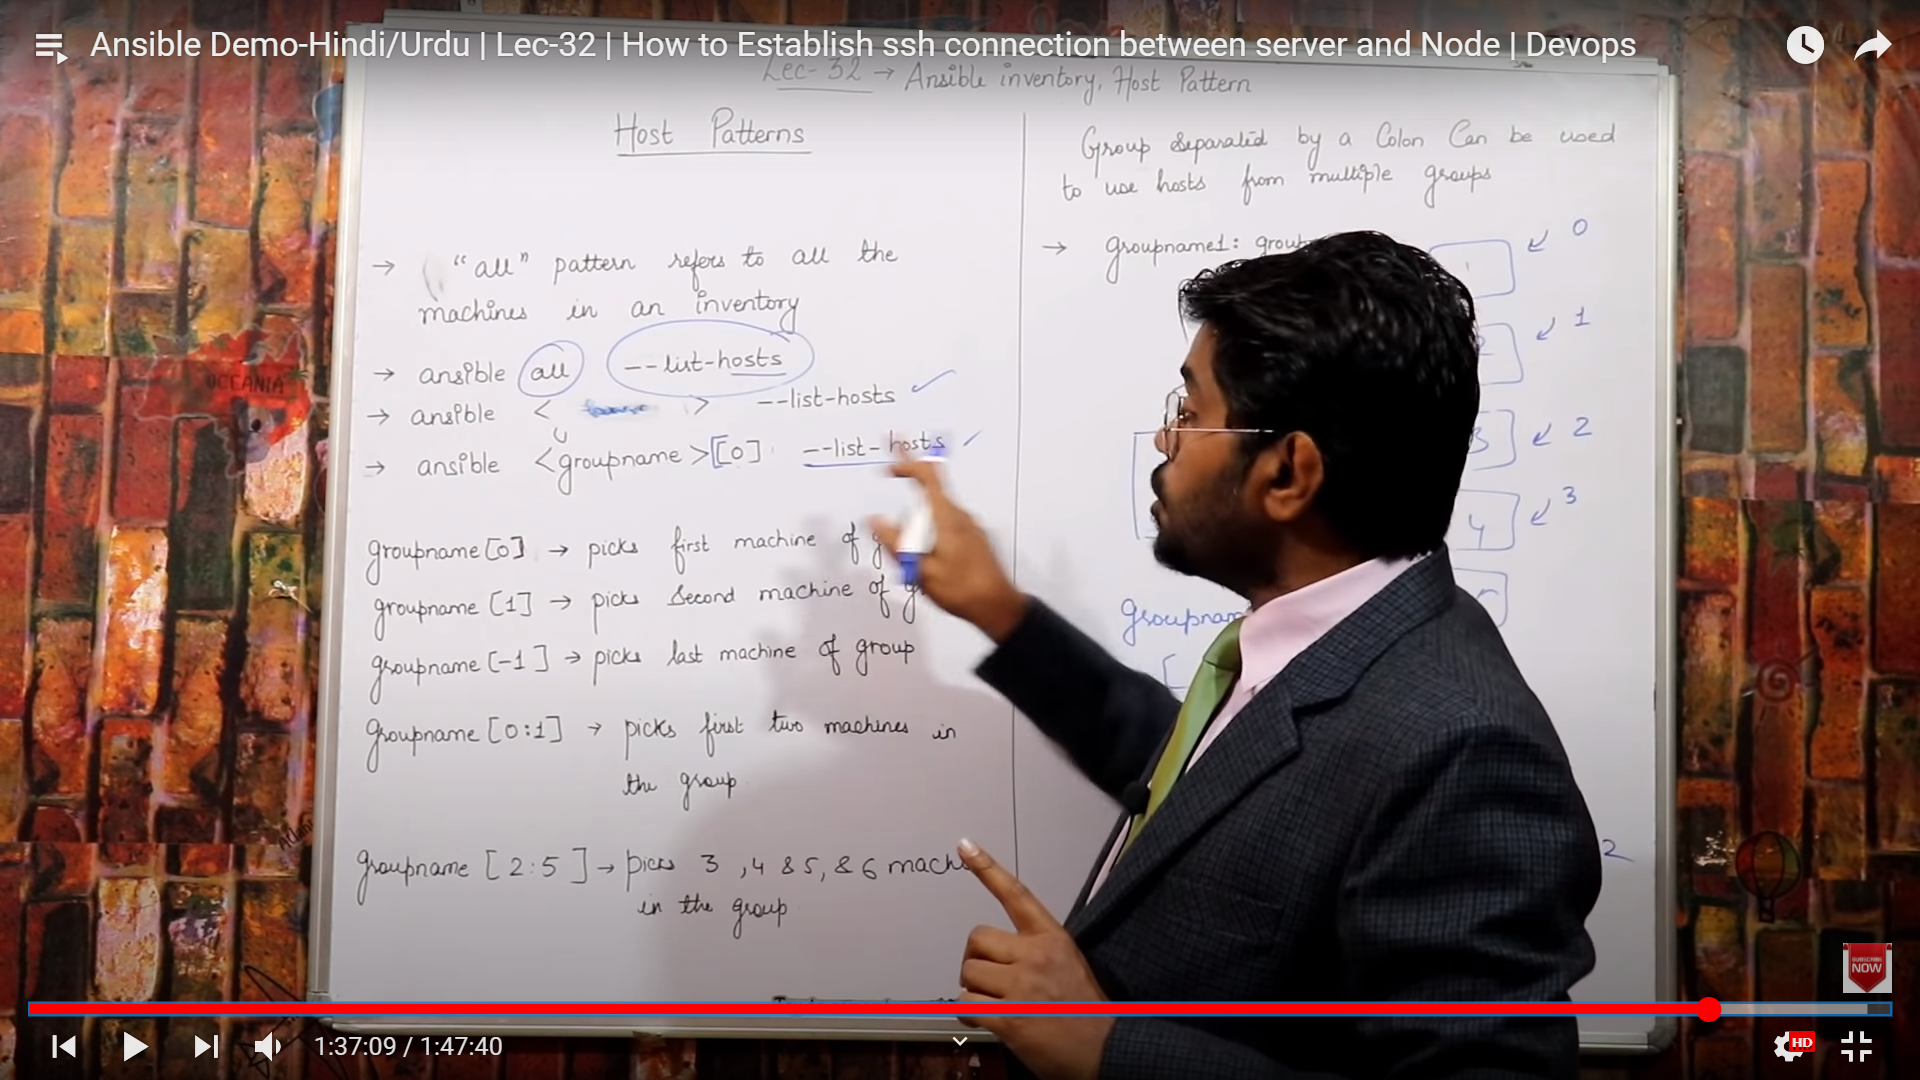 Ansible Demo-Hindi/Urdu | Lec-32 | How to Establish ssh connection between server and Node | Devops
Lec-32 → Ansible inventory, Host Pattern
Host Patterns
→ "all" pattern refers to all the
machines in an inventory
→ ansible all --list-hosts
→ ansible < > --list-hosts ✓
→ ansible <groupname>[0] --list-hosts ✓
groupname [0] → picks first machine of
groupname [1] → picks second machine of
groupname [-1] → picks last machine of group
groupname [0:1] → picks first two machines in
the group
groupname [2:5] → picks 3, 4 & 5, & 6
in the group
Group separated by a Colon Can be used
to use hosts from multiple groups
→ groupname1:
0
1
3 2
4 3
2
OCEANIA
SUBSCRIBE
NOW
1:37:09 / 1:47:40
HD